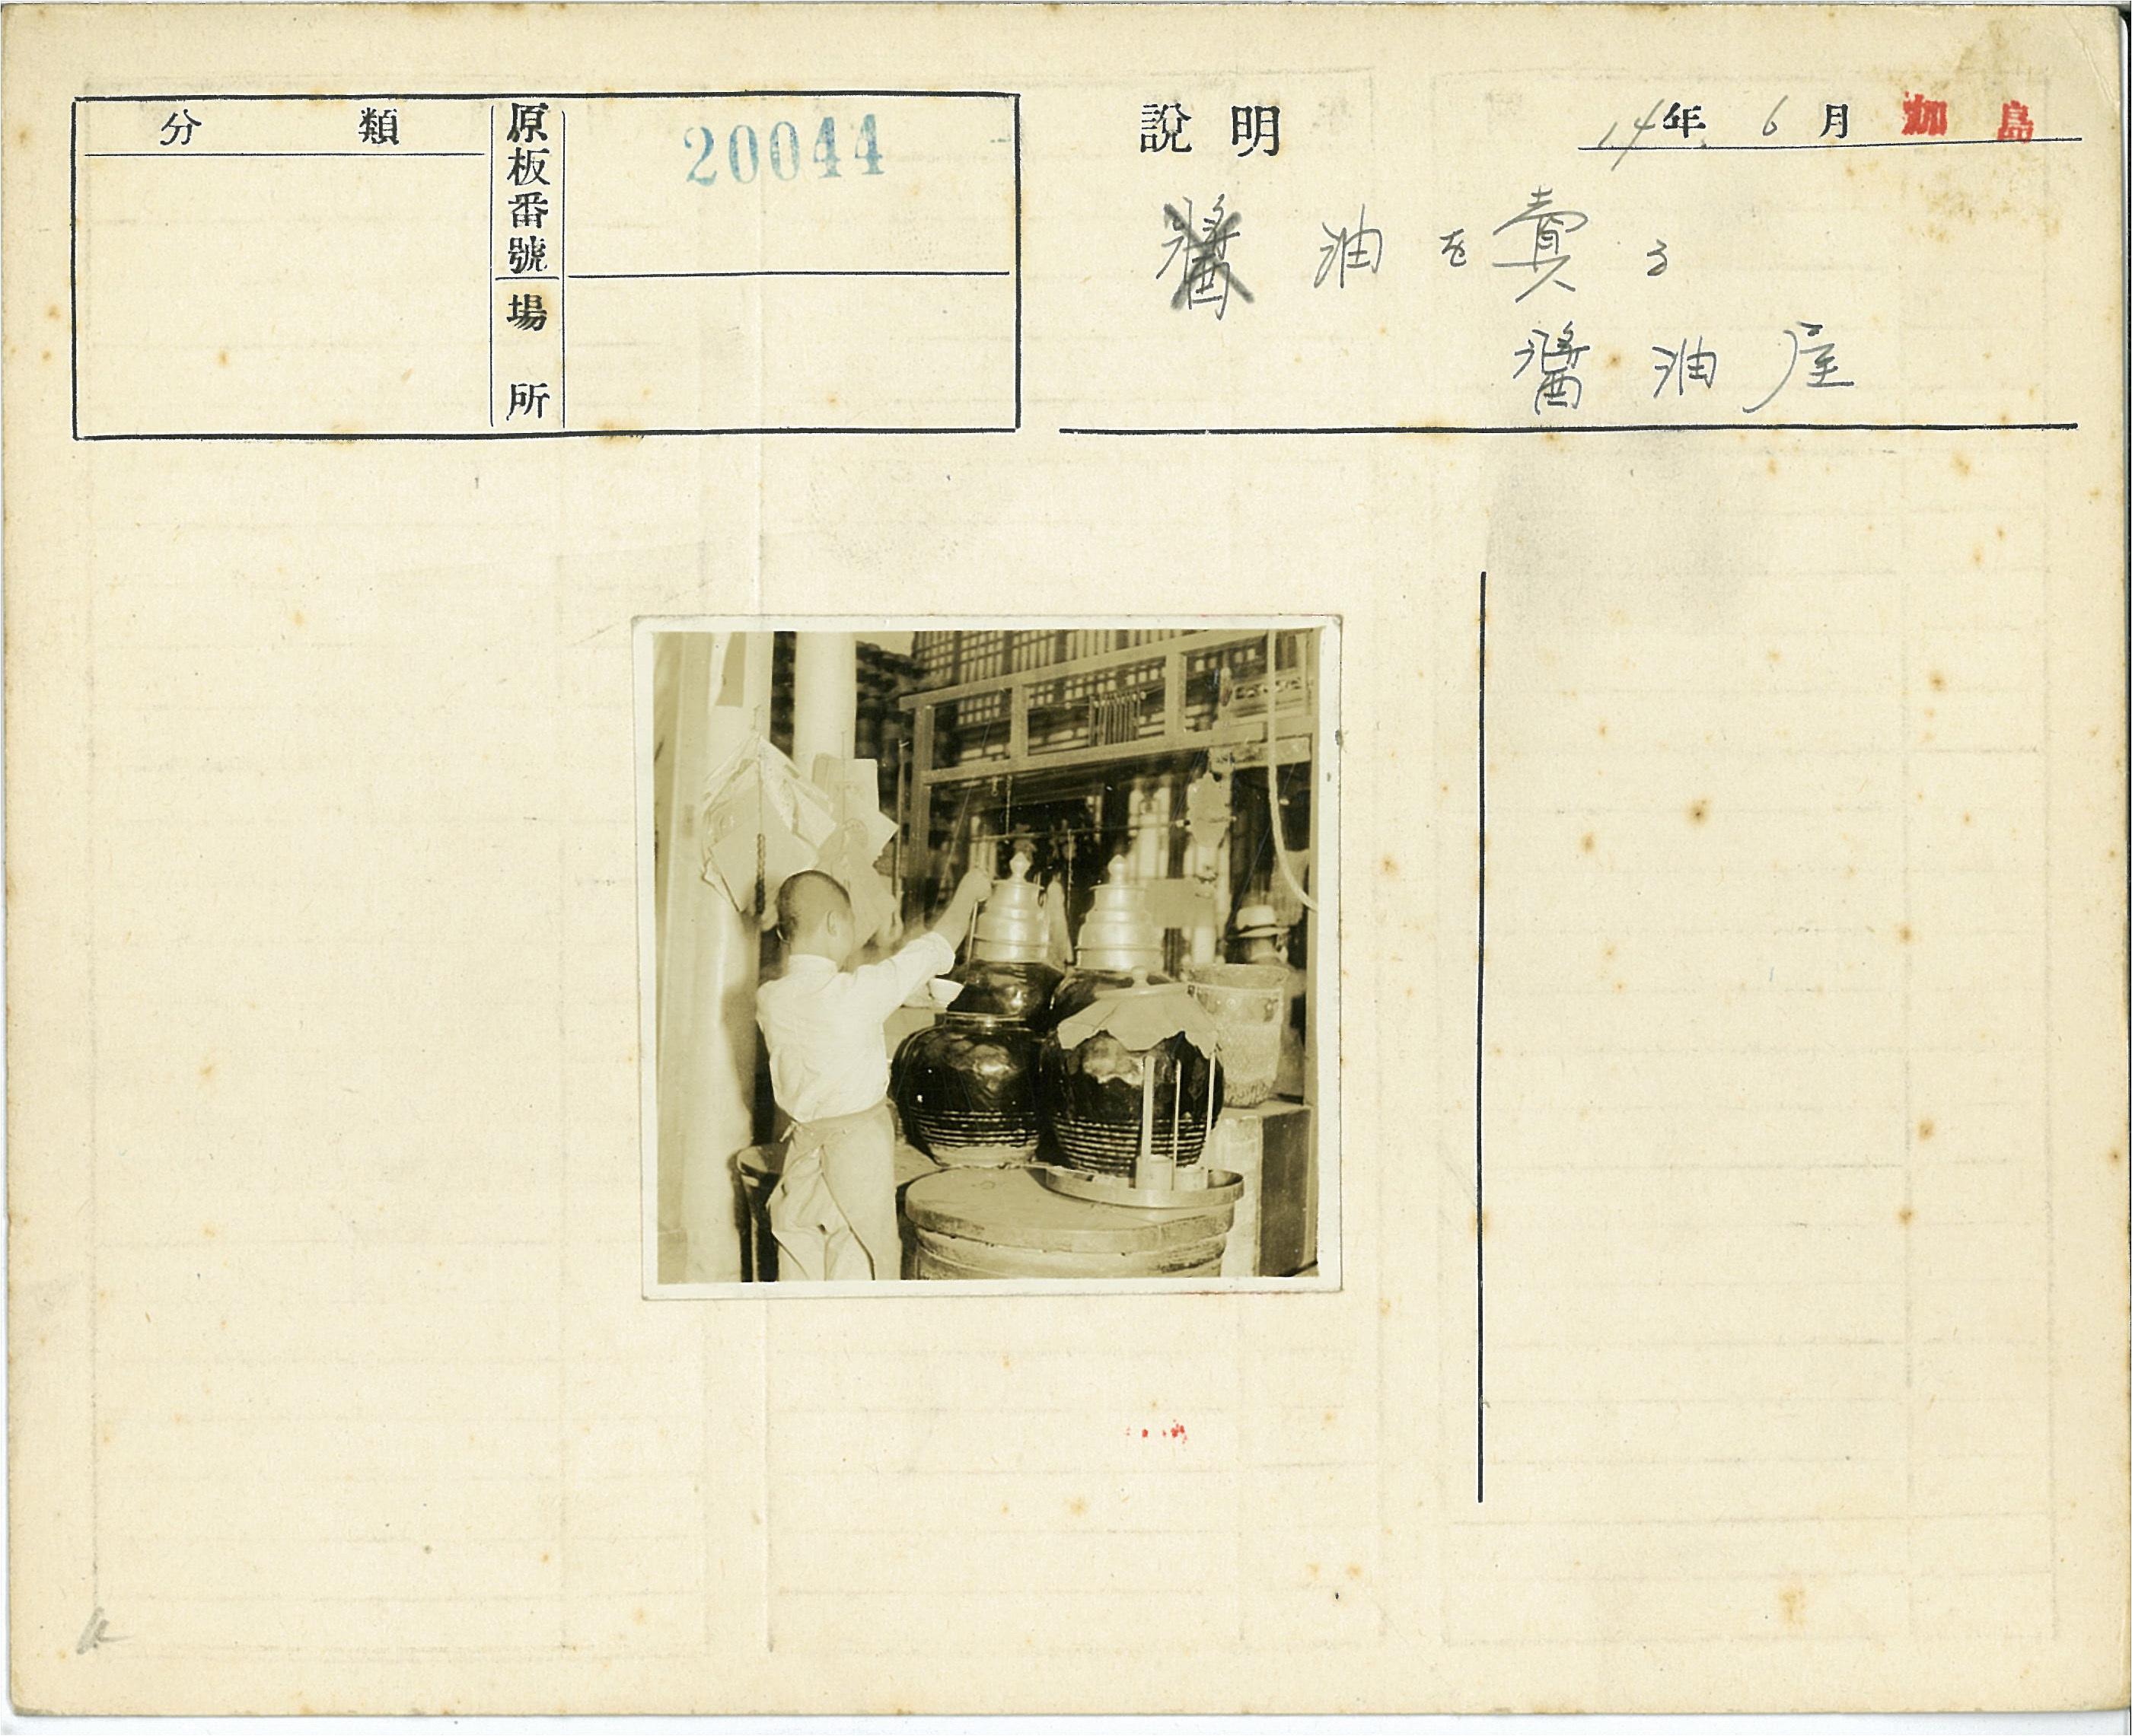 分類
原板番號
20044
場所
說明
14年 6月 加島
醬油を賣る
醬油屋